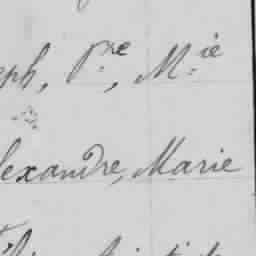 eph, Pre, Mie
lexandre, Marie